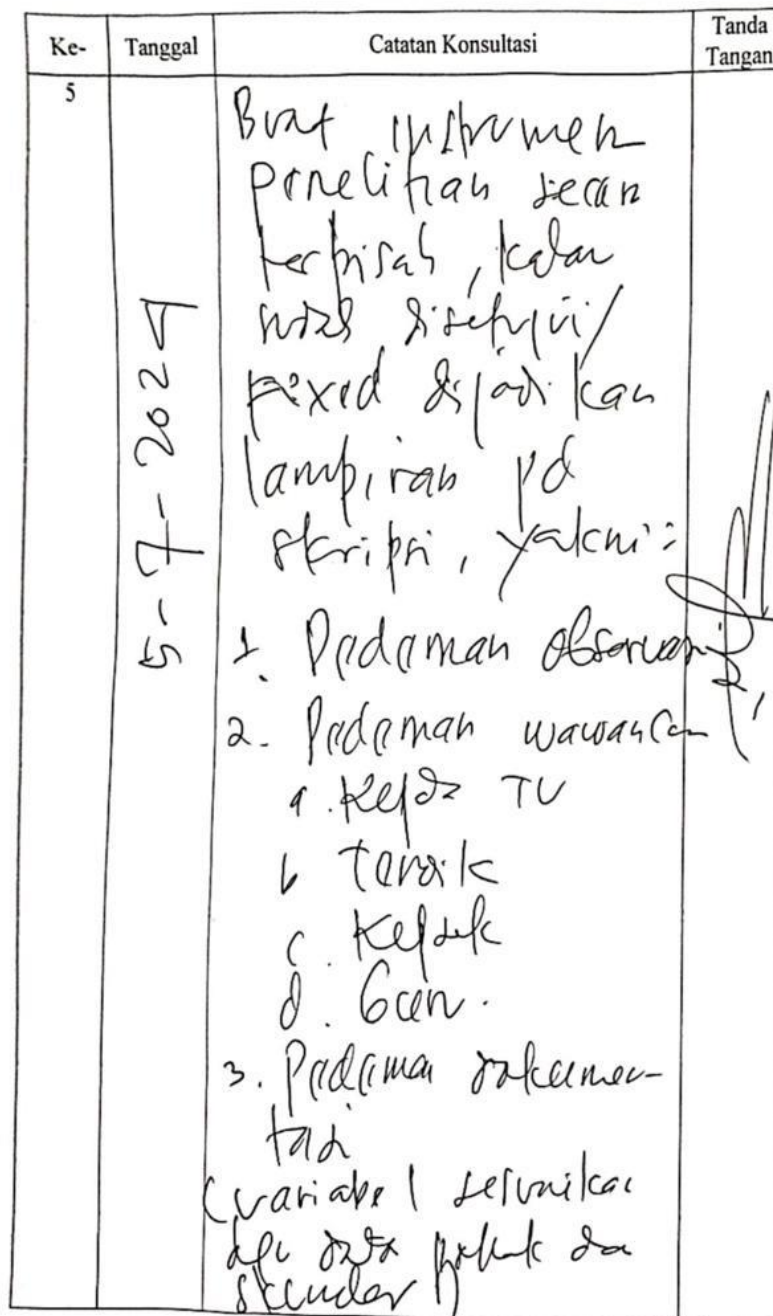 Ke-
Tanggal
Catatan Konsultasi
Tanda
Tangan
5
5-7-2024
Buat instrumen
penelitian secara
terpisah, kalau
sudah disetujui/
fixed dijadikan
lampiran pd
skripsi, yakni:
1. Pedoman observasi
2. Pedoman wawancara
a. Kepala TU
b
c. Kepsek
d. Guru.
3. Pedoman dokumen-
tasi
(variabel sesuaikan
dgn data pokok dan
skunder)